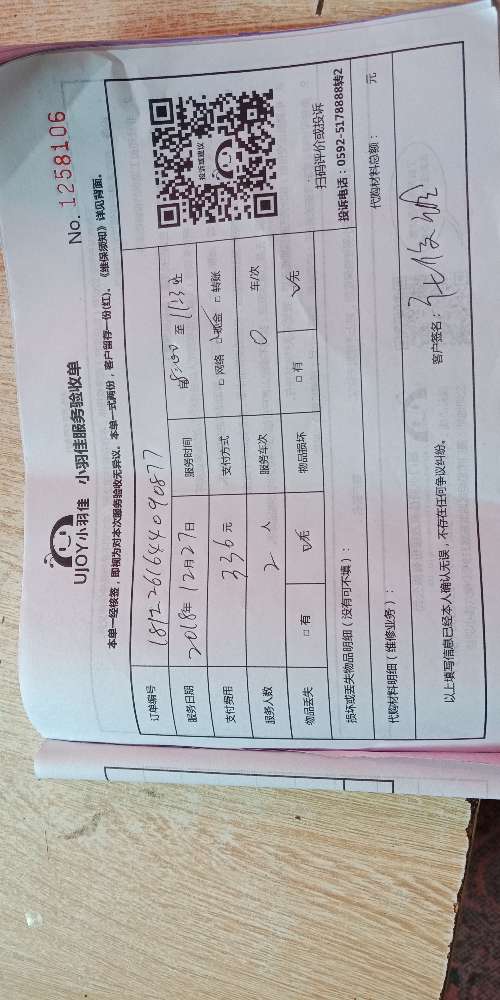 UJOY小羽佳 小羽佳服务验收单
No. 1258106
本单一经核签，即视为对本次服务验收无异议。本单一式两份，客户留存一份(红)。《维保须知》详见背面。
订单编号 1812261644090877
服务日期 2018年12月27日 服务时间 自8:00 至 11:30
支付费用 336元 支付方式 □ 网络 ☑ 现金 □ 转账
服务人数 2 人 服务车次 0 车/次
物品丢失 □ 有 ☑ 无 物品损坏 □ 有 ☑ 无
投诉或建议
扫码评价或投诉
投诉电话：0592-5178888转2
损坏或丢失物品明细（没有可不填）：
代购材料明细（维修业务）： 代购材料总额： 元
以上填写信息已经本人确认无误，不存在任何争议纠纷。
客户签名：